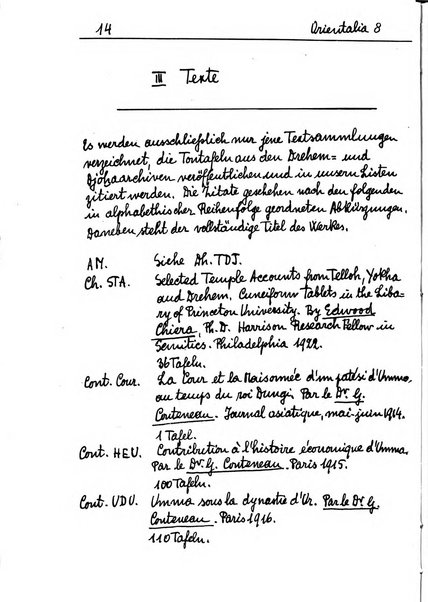 14 Orientalia 8
III Texte
Es werden ausschließlich nur jene Textsammlungen
verzeichnet, die Tontafeln aus den Drehem= und
Djohaarchiven veröffentlichen und in unsern Listen
zitiert werden. Die Zitate geschehen nach den folgenden
in alphabethischer Reihenfolge geordneten Abkürzungen.
Daneben steht der vollständige Titel des Werkes.
AM. Siehe Dh. TDJ.
Ch. STA. Selected Temple Accounts from Telloh, Yokha
and Drehem. Cuneiform Tablets in the Liba=
ry of Princeton University. By Edwood
Chiera, Ph. D. Harrison Research Fellow in
Semitics. Philadelphia 1922.
36 Tafeln.
Cont. Cour. La Cour et la Maisonnée d'un patési d'Umma
au temps du roi Dungi. Par le Dr. G.
Conteneau. Journal asiatique, mai-juin 1914.
1 Tafel.
Cont. HEU. Contribution à l'histoire économique d'Umma.
Par le Dr. G. Conteneau. Paris 1915.
100 Tafeln.
Cont. UDU. Umma sous la dynastie d'Ur. Par le Dr G.
Conteneau. Paris 1916.
110 Tafeln.